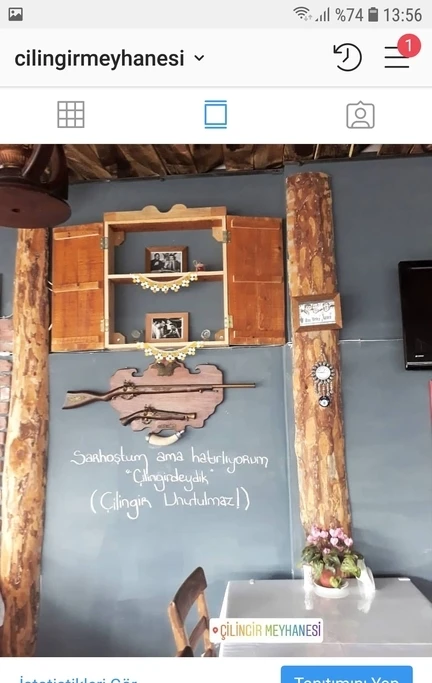 %74 13:56
cilingirmeyhanesi
1
Sarhoştum ama hatırlıyorum
"Çilingirdeydik"
(Çilingir Unutulmaz!)
ÇİLİNGİR MEYHANESİ
İstatistikleri Gör
Tanıtımını Yap